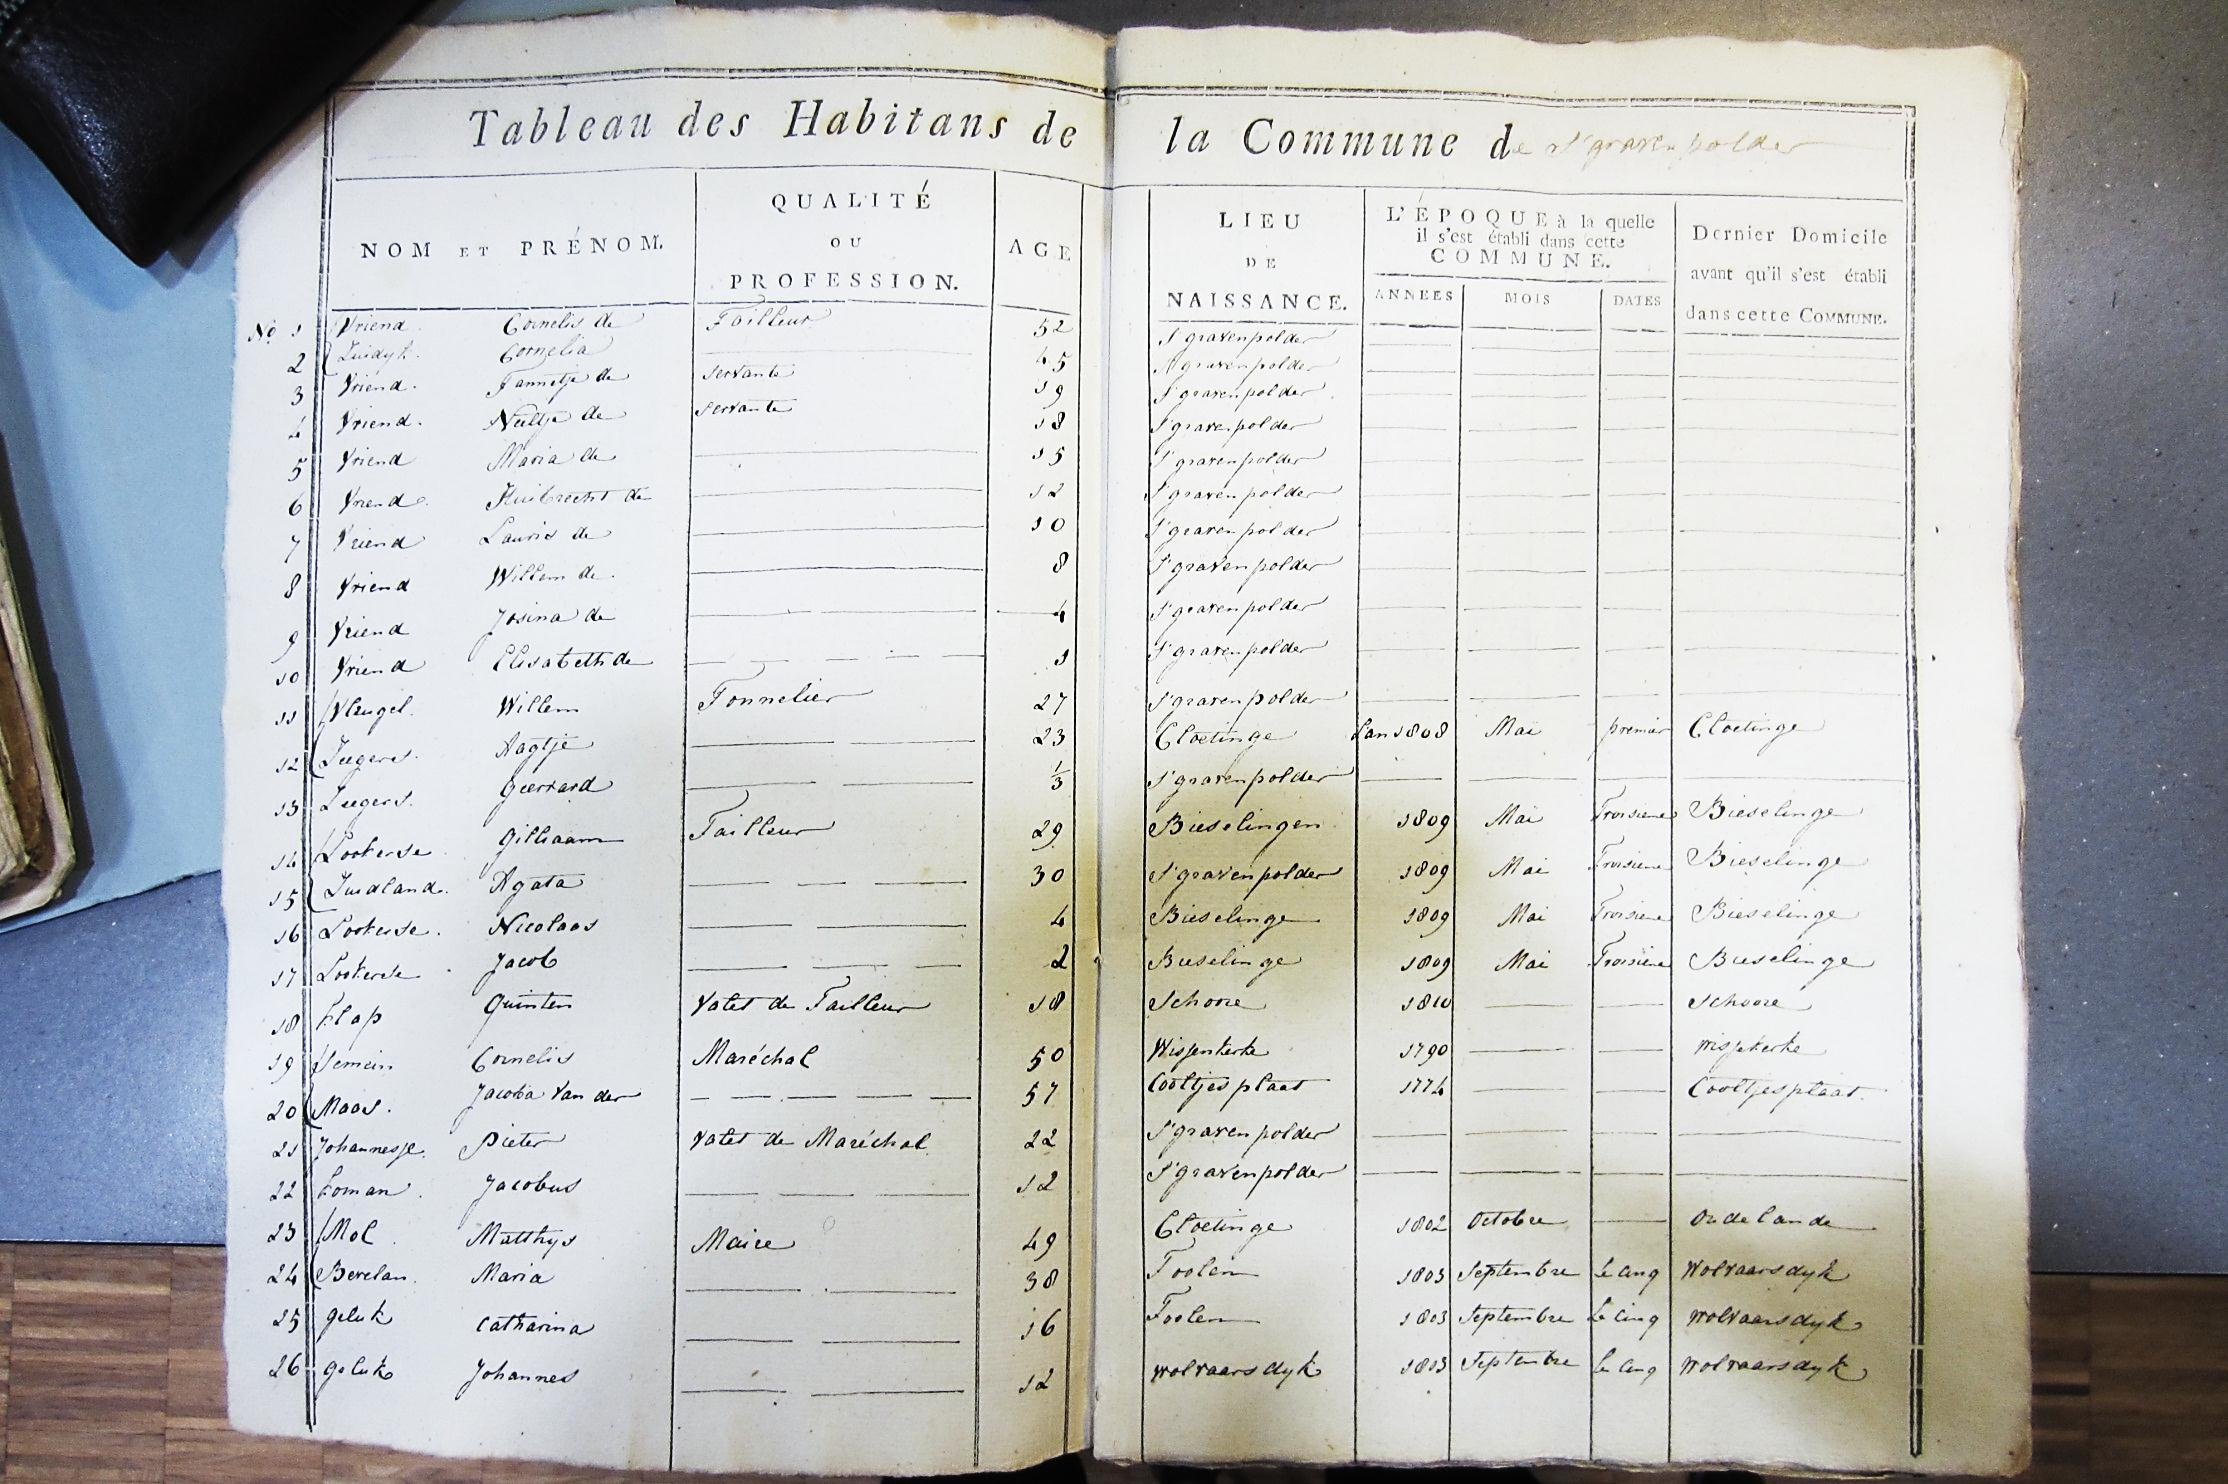 Tableau des Habitans de la Commune de S'gravenpolder
NOM ET PRÉNOM. QUALITÉ OU PROFESSION. AGE LIEU DE NAISSANCE. L'ÉPOQUE à la quelle il s'est établi dans cette COMMUNE. ANNEES MOIS DATES Dernier Domicile avant qu'il s'est établi dans cette COMMUNE.
No 1 Vriend Cornelis de Tailleur 52 S'gravenpolder
2 Zuidyk Cornelia 45 S'gravenpolder
3 Vriend Tannetje de servante 19 S'gravenpolder
4 Vriend Neeltje de servante 18 S'gravenpolder
5 Vriend Maria de 15 S'gravenpolder
6 Vriend Huibrecht de 12 S'gravenpolder
7 Vriend Lauris de 10 S'gravenpolder
8 Vriend Willem de 8 S'gravenpolder
9 Vriend Josina de 4 S'gravenpolder
10 Vriend Elisabeth de 1 S'gravenpolder
11 Vleugel Willem Tonnelier 27 S'gravenpolder
12 Zeegers Aagtje 23 Cloetinge L'an 1808 Mai premier Cloetinge
13 Zeegers Geerrard 1/3 S'gravenpolder
14 Lookerse Gilliaam Tailleur 29 Bieselingen 1809 Mai Troisieme Bieselinge
15 Zuidland Agata 30 S'gravenpolder 1809 Mai Troisieme Bieselinge
16 Lookerse Nicolaas 4 Bieselinge 1809 Mai Troisieme Bieselinge
17 Lookerse Jacob 2 Bieselinge 1809 Mai Troisieme Bieselinge
18 Klap Quinten Valet de Tailleur 18 Schoore 1810 Schoore
19 Semein Cornelis Maréchal 50 Wissenkerke 1790 Wissekerke
20 Maas Jacoba van der 57 Cooltjesplaat 1774 Cooltjesplaat
21 Johannesse Pieter Valet de Maréchal 22 S'gravenpolder
22 Koman Jacobus 12 S'gravenpolder
23 Mol Matthys Maire 49 Cloetinge 1802 Octobre Oudelande
24 Bevelan Maria 38 Toolen 1803 Septembre Le cinq Wolvaarsdyk
25 geluk Catharina 16 Toolen 1803 Septembre Le cinq wolvaarsdyk
26 geluk Johannes 12 wolvaarsdyk 1803 Septembre Le cinq Wolvaarsdyk